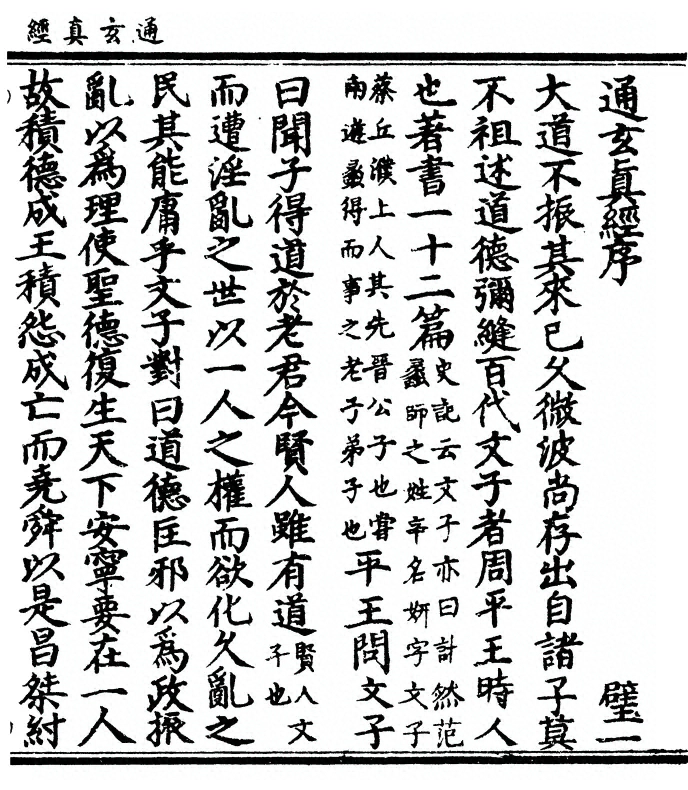 通玄真經
通玄眞經序 璧一
大道不振其來已久微波尚存出自諸子莫
不祖述道德彌縫百代文子者周平王時人
也著書一十二篇史記云文子亦曰計然范蠡師之姓辛名妍字文子
蔡丘濮上人其先晉公子也嘗南遊蠡得而事之老子弟子也平王問文子
曰聞子得道於老君今賢人雖有道賢人文子也
而遭淫亂之世以一人之權而欲化久亂之
民其能庸乎文子對曰道德匡邪以爲政振
亂以爲理使聖德復生天下安寧要在一人
故積德成王積怨成亡而堯舜以是昌桀紂